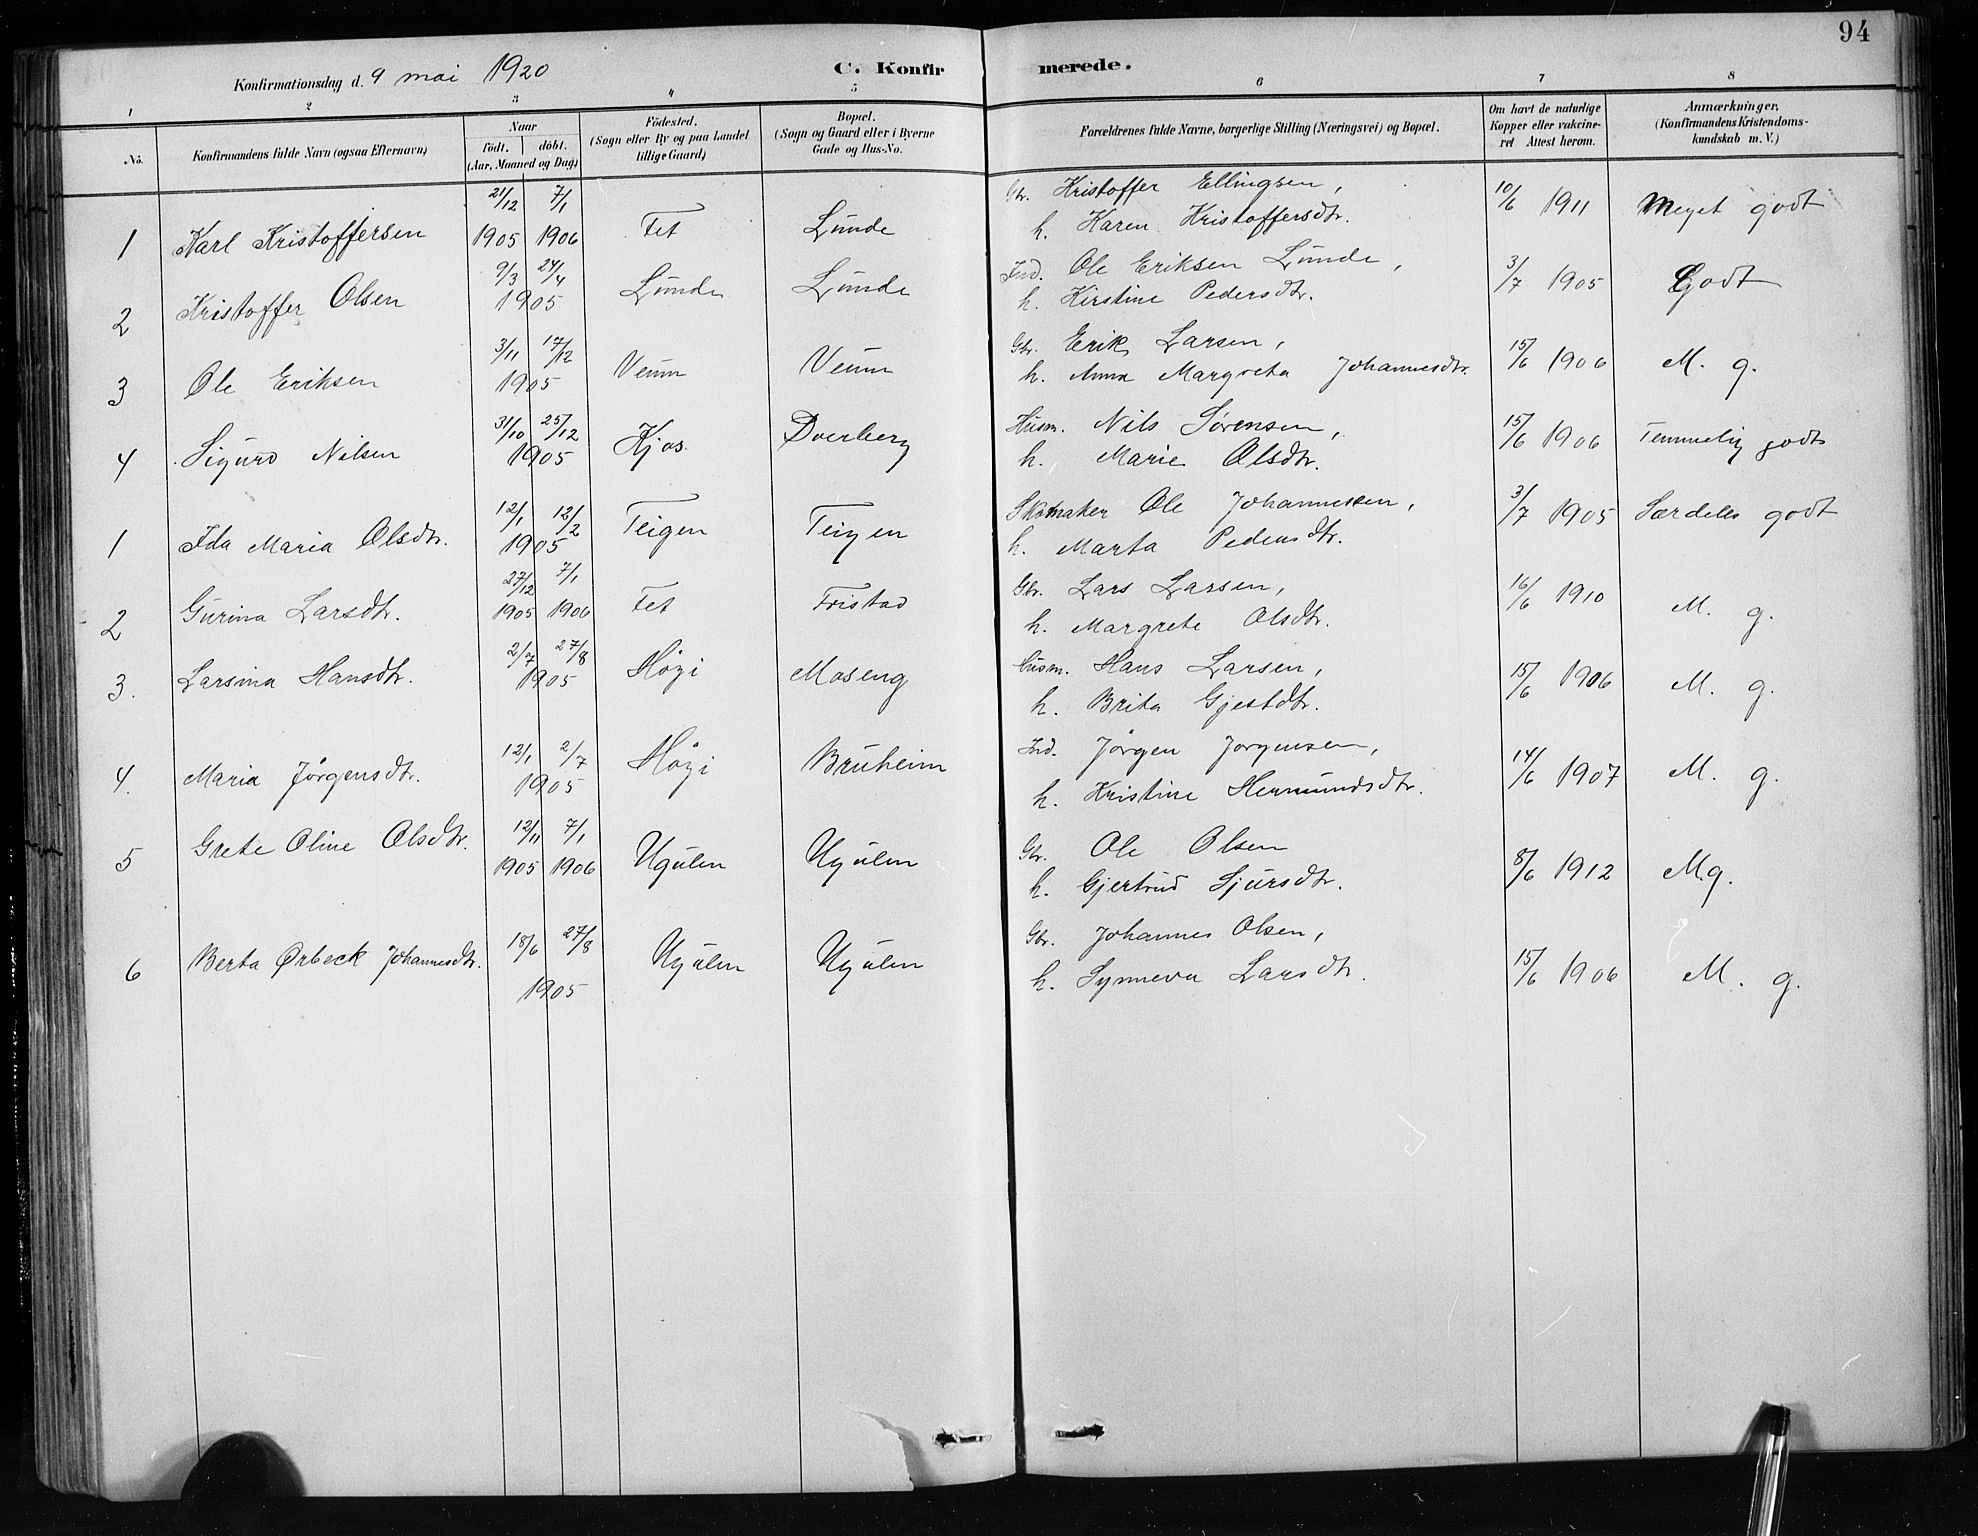 94
Konfirmationsdag d. 9 mai 1920
C. Konfirmerede.
1 2 3 4 5 6 7 8
No.
Konfirmandens fulde Navn (ogsaa Efternavn)
Naar
født. døbt.
(Aar, Maaned og Dag)
Fødested.
(Sogn eller By og paa Landet
tillige Gaard)
Bopæl.
(Sogn og Gaard eller i Byerne
Gade og Hus-No.
Forældrenes fulde Navne, borgerlige Stilling (Næringsvei) og Bopæl.
Om havt de naturlige
Kopper eller vakcine-
ret Attest herom.
Anmærkninger.
(Konfirmandens Kristendoms-
kundskab m. V.)
1 Karl Kristoffersen 21/12 1905 7/1 1906 Fet Lunde Gbr. Kristoffer Ellingsen, 10/6 1911 Meget godt
h. Karen Kristoffersdtr.
2 Kristoffer Olsen 9/3 24/4 1905 Lunde Lunde Ind. Ole Eriksen Lunde, 3/7 1905 Godt
h. Kirstine Pedersdtr.
3 Ole Eriksen 3/11 17/12 1905 Veum Veum Gbr. Erik Larsen, 15/6 1906 M. g.
h. Anna Margreta Johannesdtr.
4 Sigurd Nilsen 31/10 25/12 1905 Kjos Dverberg Husm. Nils Sørensen, 15/6 1906 Temmelig godt
h. Marie Olsdtr.
1 Ida Maria Olsdtr. 12/1 12/2 1905 Teigen Teigen Skomaker Ole Johannessen, 3/7 1905 Særdeles godt
h. Marta Pedersdtr.
2 Gurina Larsdtr. 27/12 1905 7/1 1906 Fet Fristad Gbr. Lars Larsen, 16/6 1910 M. g.
h. Margrete Olsdtr.
3. Larsina Hansdtr. 2/7 27/8 1905 Høgi Moseng Husm. Hans Larsen, 15/6 1906 M. g.
h. Brita Gjestdtr.
4. Maria Jørgensdtr. 12/1 2/7 1905 Høgi Bruheim Ind. Jørgen Jørgensen, 14/6 1907 M. g.
h. Kristine Hermundsdtr.
5 Grete Oline Olsdtr. 12/11 1905 7/1 1906 Ugulen Ugulen Gbr. Ole Olsen 8/6 1912 M.g.
h. Gjertrud Sjursdtr.
6 Berta Ørbeck Johannesdtr. 18/6 27/8 1905 Ugulen Ugulen Gbr. Johannes Olsen, 15/6 1906 M. g.
h. Synneva Larsdtr.